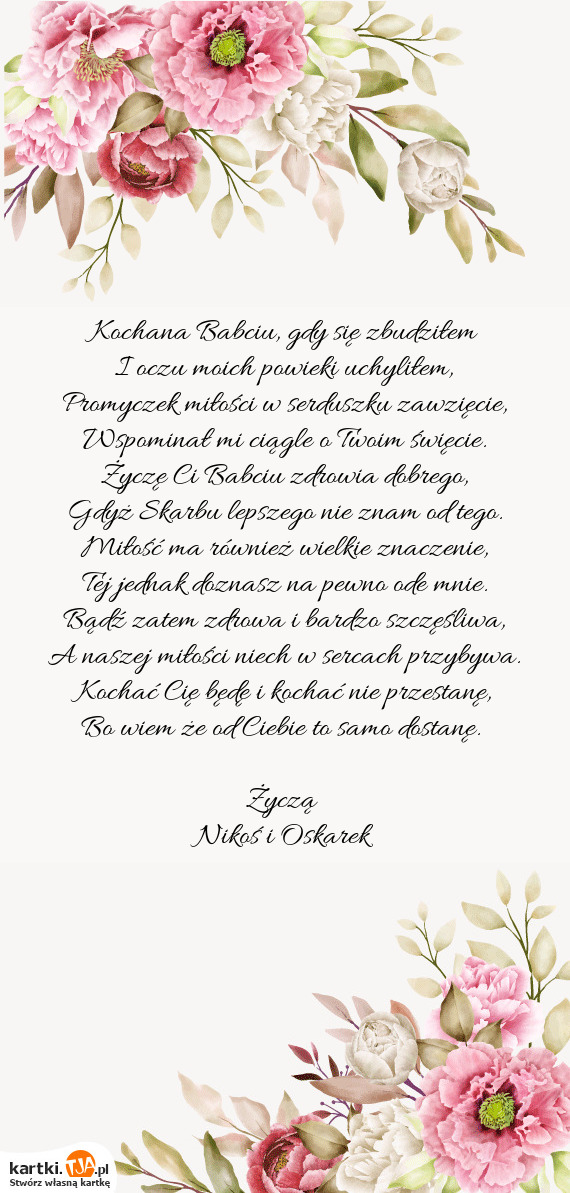 Kochana Babciu, gdy się zbudziłem
I oczu moich powieki uchyliłem,
Promyczek miłości w serduszku zawzięcie,
Wspominał mi ciągle o Twoim święcie.
Życzę Ci Babciu zdrowia dobrego,
Gdyż Skarbu lepszego nie znam od tego.
Miłość ma również wielkie znaczenie,
Tej jednak doznasz na pewno ode mnie.
Bądź zatem zdrowa i bardzo szczęśliwa,
A naszej miłości niech w sercach przybywa.
Kochać Cię będę i kochać nie przestanę,
Bo wiem że od Ciebie to samo dostanę.
Życzą
Nikoś i Oskarek
kartki.TJA.pl
Stwórz własną kartkę